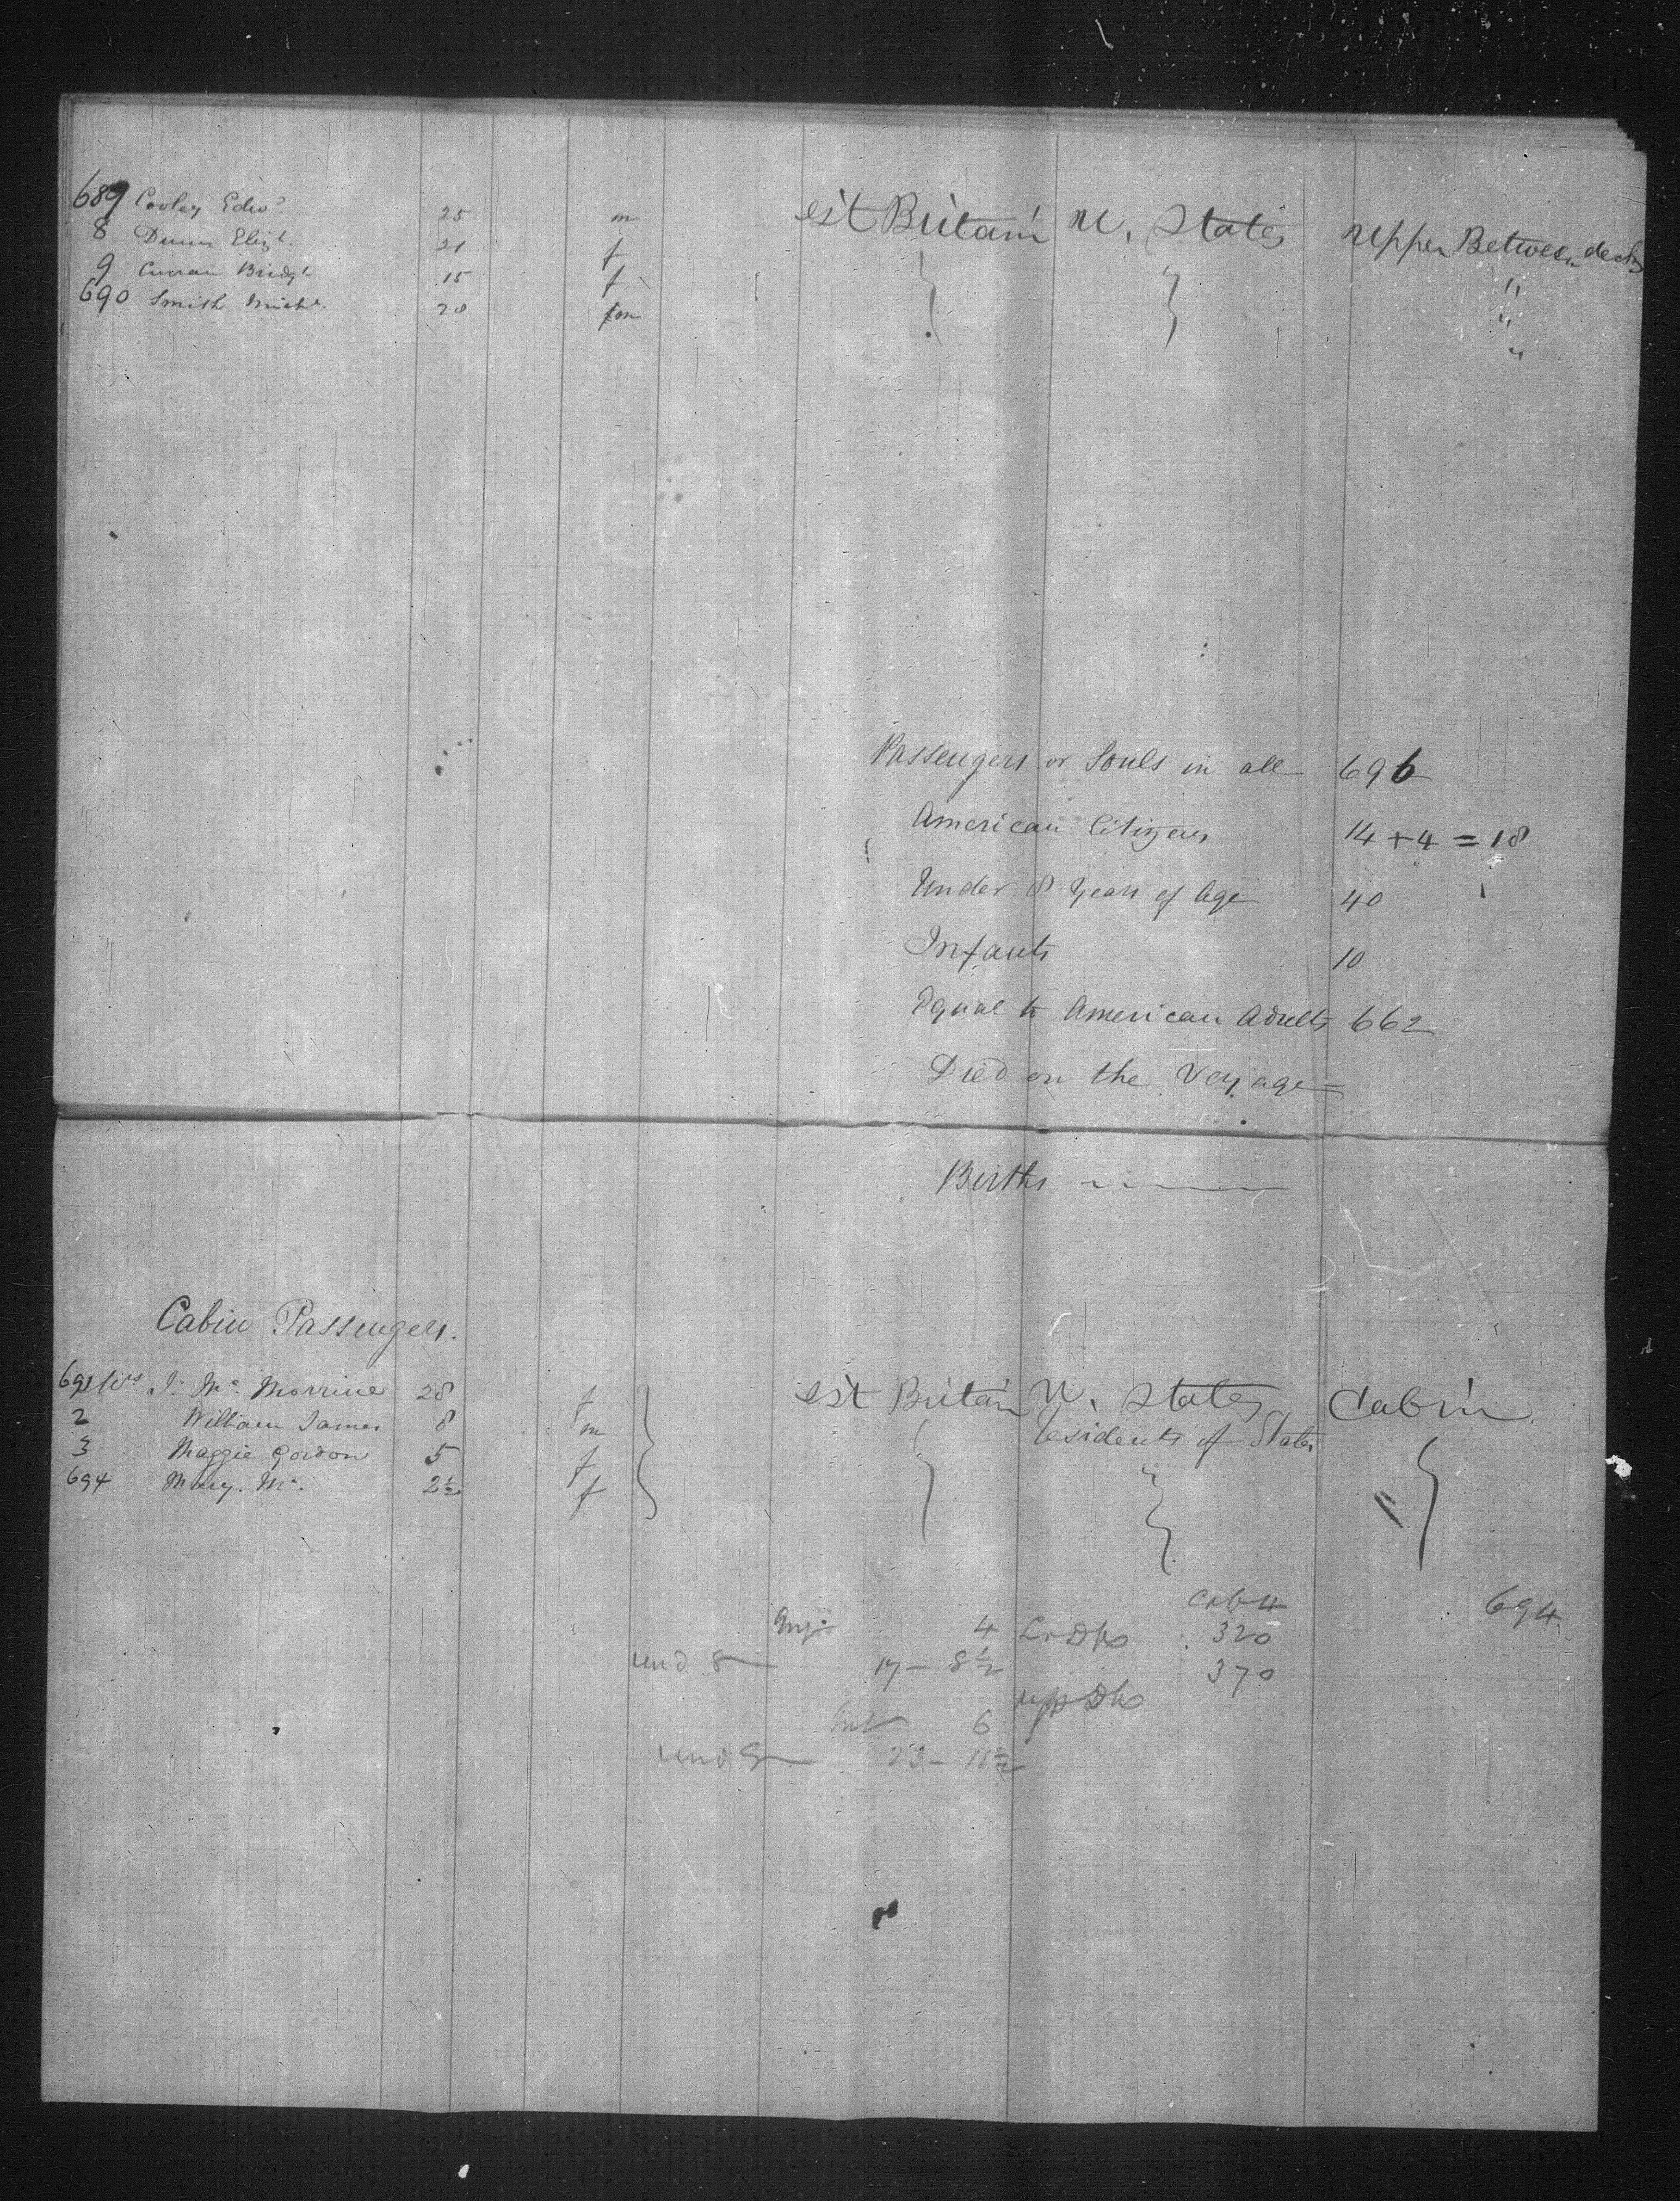 689 Cooley Edwd. 25 m est Britain U. States Upper Between decks
8 Dunn Elizt. 21 f
9 Curran Bridgt. 15 f "
690 Smith Michl. 20 m "
"
Passengers or Souls in all 696
American Citizens 14 + 4 = 18
Under 8 Years of Age 40
Infants 10
Equal to American Adults 662
Died on the Voyage
Births
Cabin Passengers.
691 Mrs J. Mc. Morrine 28 f est Britain U. States Cabin
2 William James 8 m residents of States
3 Maggie Gordon 5 f
694 Mary. Mc. 2½ f
Cab 4 694
4 Lr Dks 320
und 8 17 – 8½ 370
upp Dks
Inf 6
und 8 23 – 11½